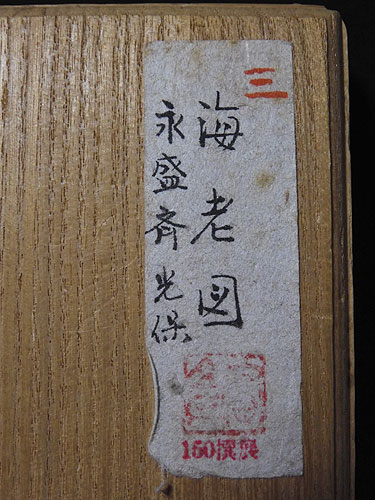 三
海老図
永盛斉光保
160撰展